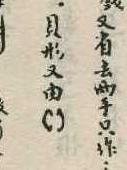 又省去兩手只作
貝形又由